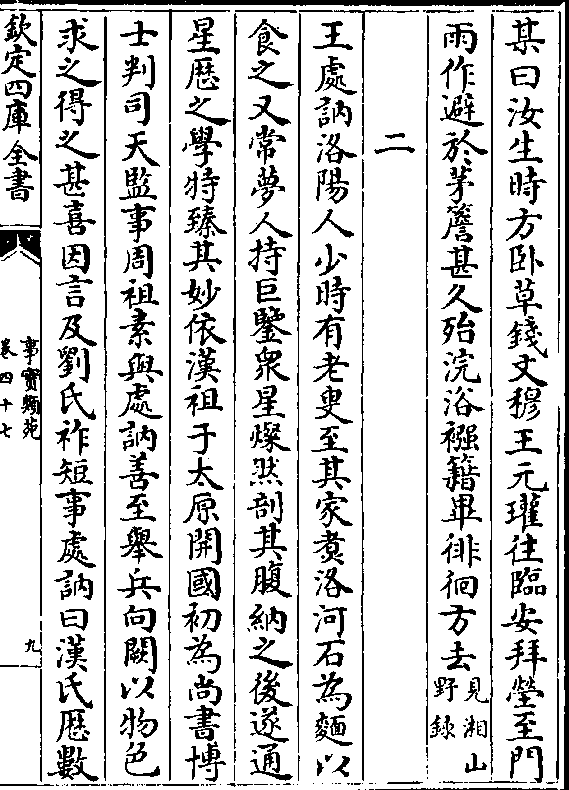 某曰汝生時方卧草錢文穆王元瓘往臨安拜塋至門
雨作避於茅簷甚久殆浣浴襁籍畢徘徊方去見湘山野録
二
王處訥洛陽人少時有老叟至其家煑洛河石為麵以
食之又常夢人持巨鑒衆星燦然剖其腹納之後遂通
星厯之學特臻其妙依漢祖于太原開國初為尚書博
士判司天監事周祖素與處訥善至舉兵向闕以物色
求之得之甚喜因言及劉氏祚短事處訥曰漢氏厯數
欽定四庫全書
事實類苑
卷四十七
九